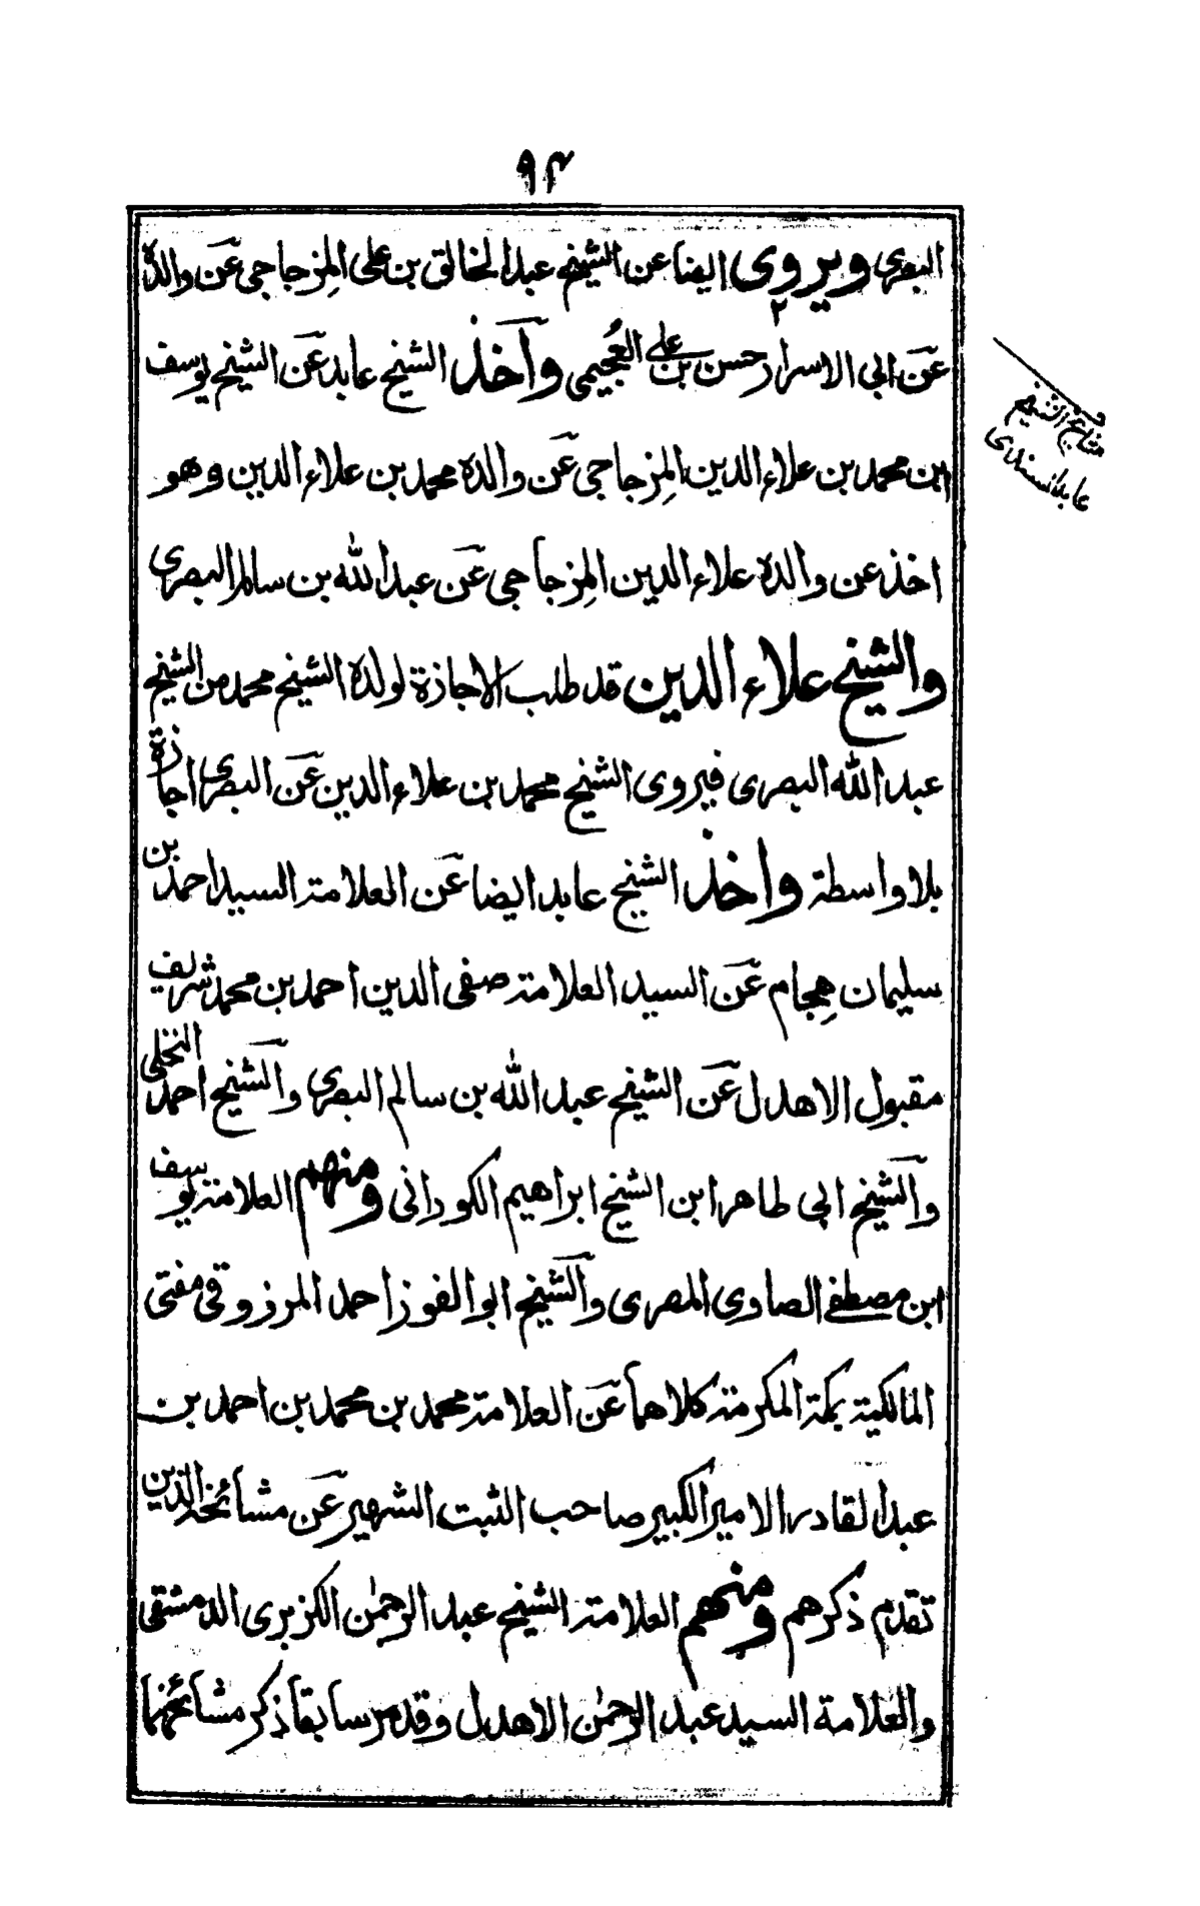 ٩٤
البصرى ويروى ايضا عن الشيخ عبد الخالق بن على المزجاجى عن والده
عن ابى الاسرار حسن بن على العجيمى واخذ الشيخ عابد عن الشيخ يوسف
ابن محمد بن علاء الدين المزجاجى عن والده محمد بن علاء الدين وهو
اخذ عن والده علاء الدين المزجاجى عن عبد الله بن سالم البصرى
والشيخ علاء الدين قد طلب الاجازة لولده الشيخ محمد من الشيخ
عبد الله البصرى فيروى الشيخ محمد بن علاء الدين عن البصرى اجازة
بلا واسطة واخذ الشيخ عابد ايضا عن العلامة السيد احمد بن
سليمان هجام عن السيد العلامة صفى الدين احمد بن محمد شريف
مقبول الاهدل عن الشيخ عبد الله بن سالم البصرى والشيخ احمد النخلى
والشيخ ابى طاهر ابن الشيخ ابراهيم الكورانى ومنهم العلامة يوسف
ابن مصطفى الصاوى المصرى والشيخ ابو الفوز احمد المرزوقى مفتى
المالكية بمكة المكرمة كلاهما عن العلامة محمد بن محمد بن احمد بن
عبد القادر الامير الكبير صاحب الثبت الشهير عن مشائخه الذين
تقدم ذكرهم ومنهم العلامة الشيخ عبد الرحمٰن الكزبرى الدمشقى
والعلامة السيد عبد الرحمٰن الاهدل وقد مر سابقا ذكر مشائخهما
مشايخ الشيخ
عابد السندى